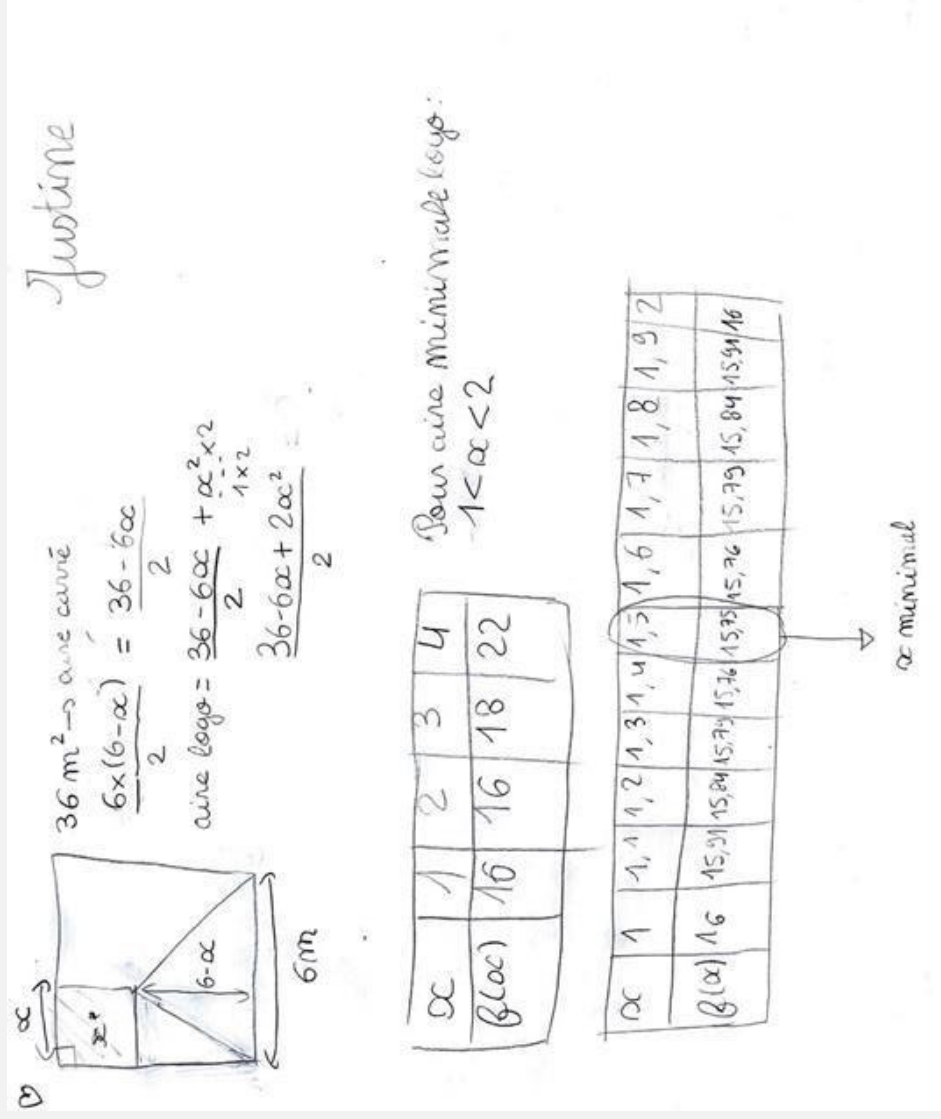 Justine
x
x²
6-x
6m
36 m² → aire carré
6×(6-x) / 2 = 36-6x / 2
aire logo = 36-6x / 2 + x² ×2 / 1×2
36-6x+2x² / 2 =
x 1 2 3 4
f(x) 16 16 18 22
Pour aire minimale logo :
1<x<2
x 1 1,1 1,2 1,3 1,4 1,5 1,6 1,7 1,8 1,9 2
f(x) 16 15,91 15,84 15,79 15,76 15,75 15,76 15,79 15,84 15,91 16
x minimal